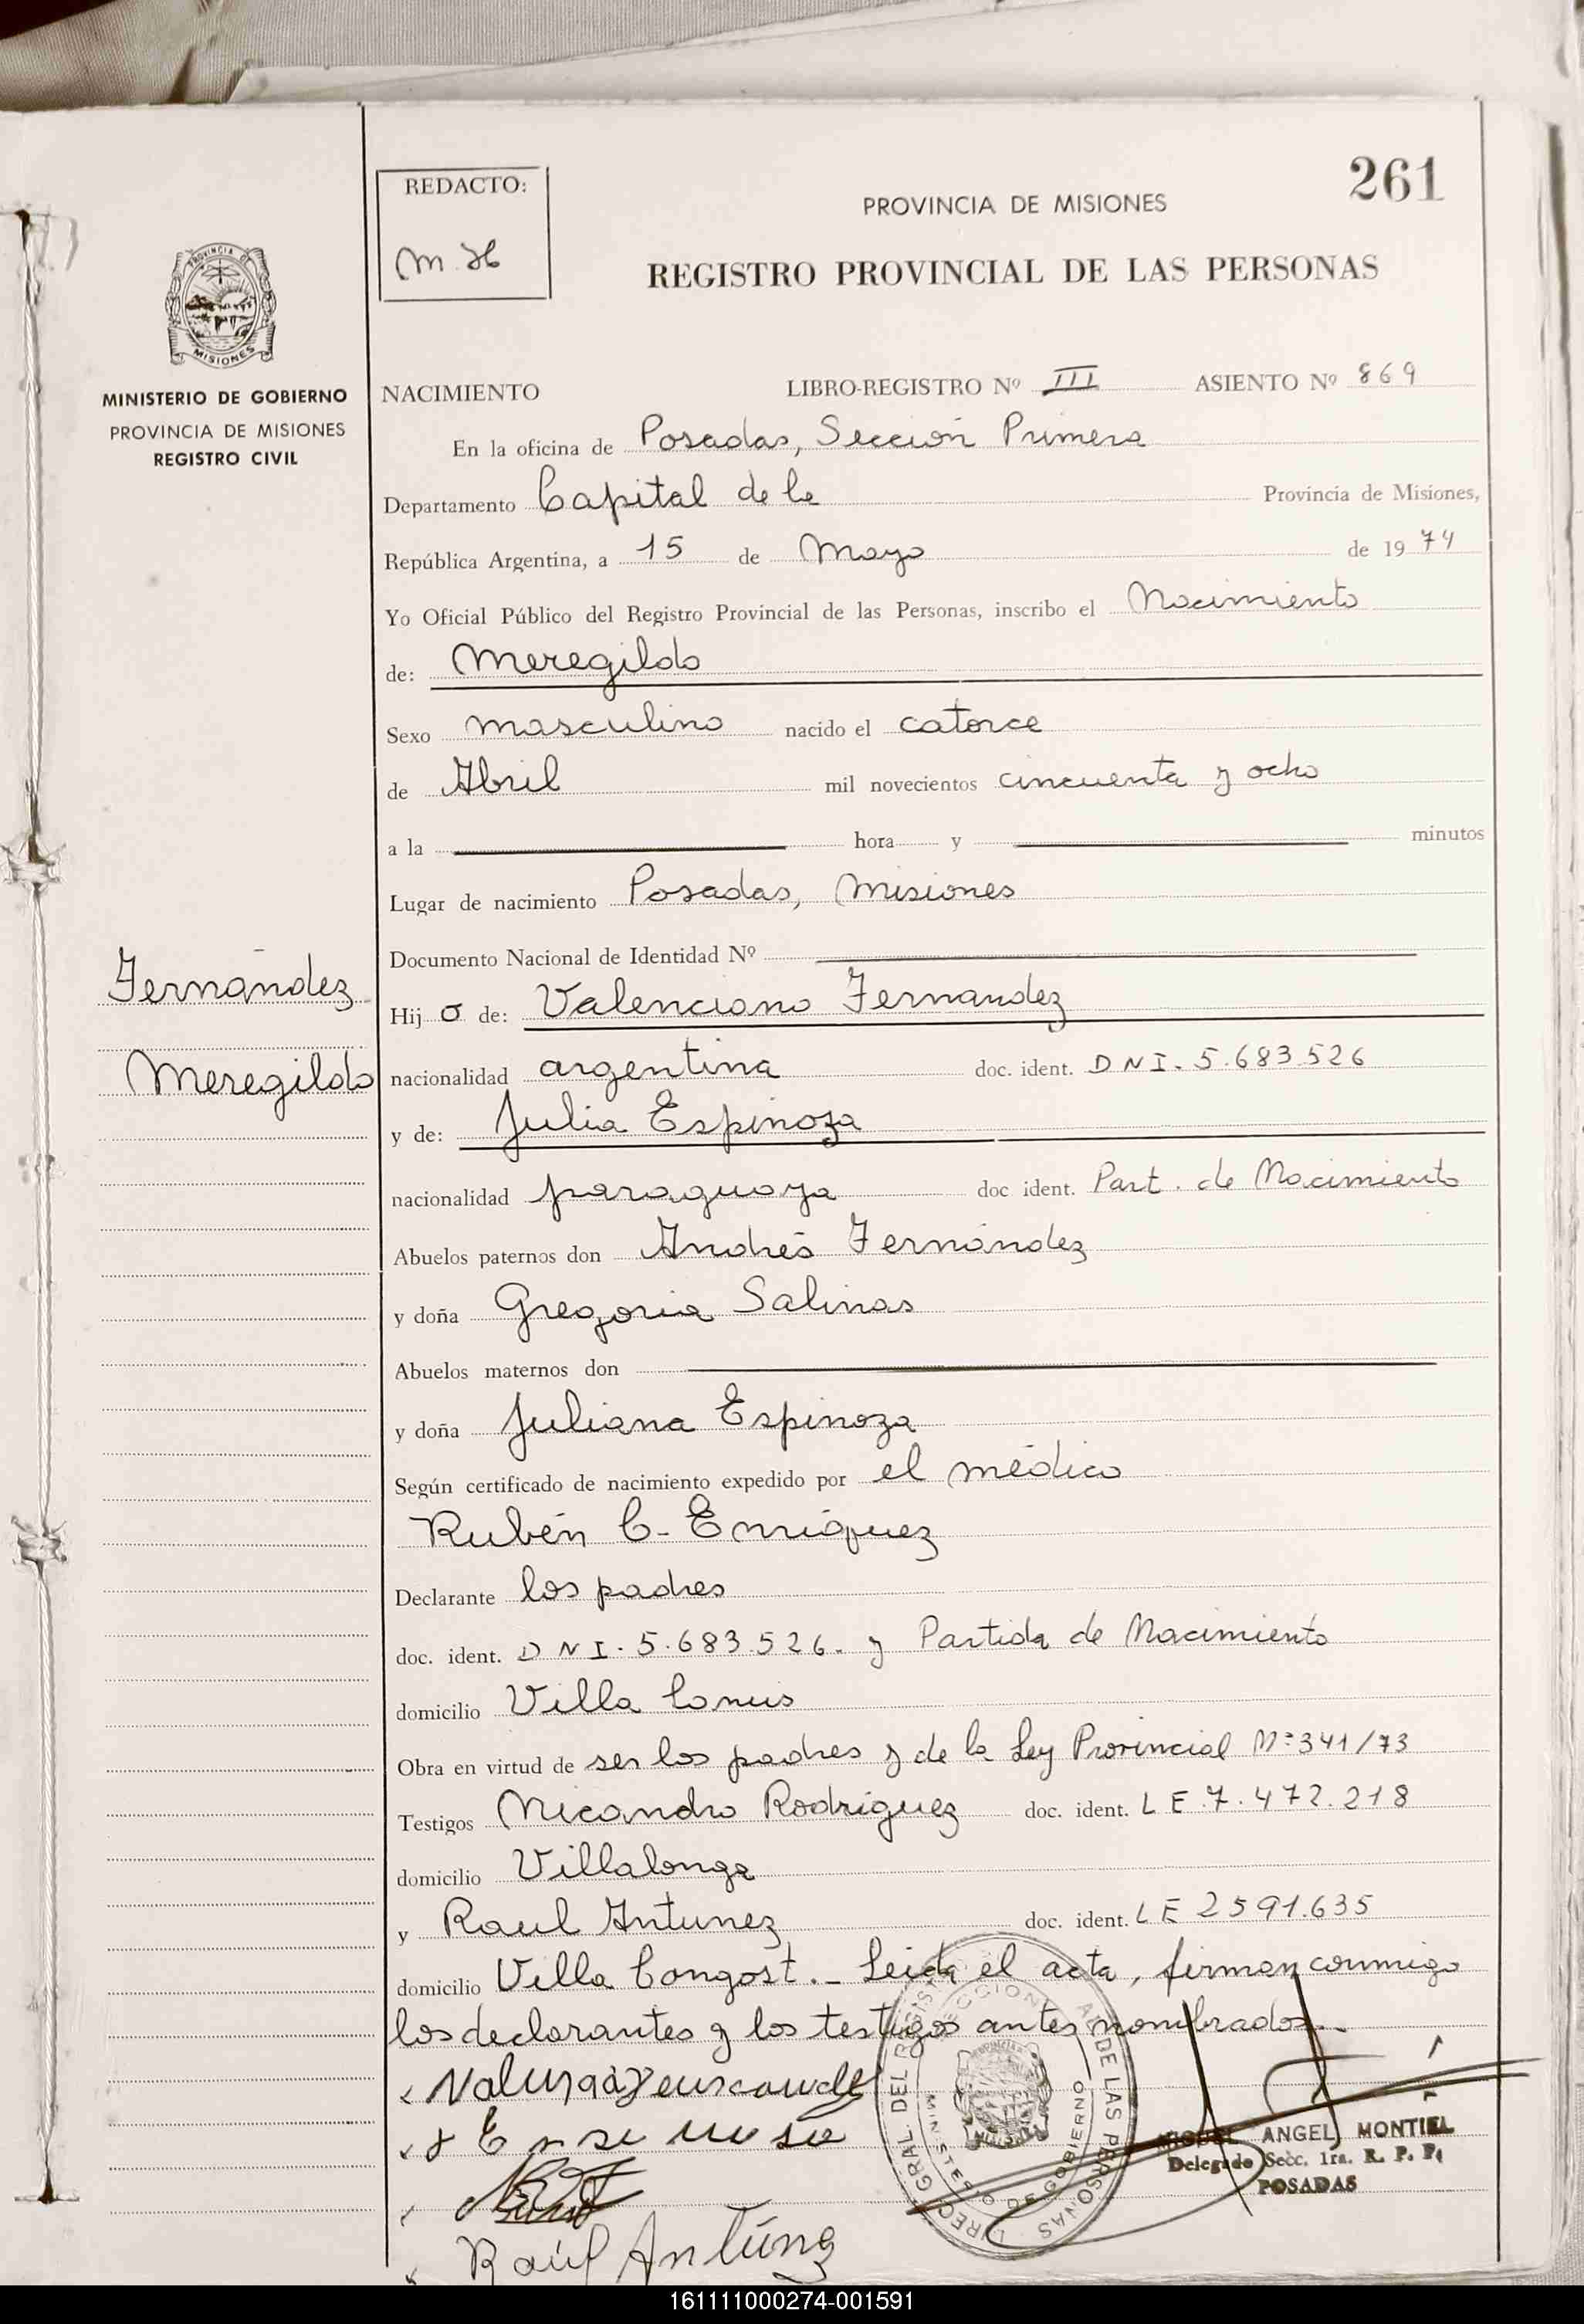 261
REDACTO:
M. H
PROVINCIA DE MISIONES
REGISTRO PROVINCIAL DE LAS PERSONAS
PROVINCIA DE
MISIONES
MINISTERIO DE GOBIERNO
PROVINCIA DE MISIONES
REGISTRO CIVIL
NACIMIENTO LIBRO-REGISTRO Nº III ASIENTO Nº 869
En la oficina de Posadas, Sección Primera
Departamento Capital de la Provincia de Misiones,
República Argentina, a 15 de Mayo de 1974
Yo Oficial Público del Registro Provincial de las Personas, inscribo el Nacimiento
de: Meregildo
Sexo masculino nacido el catorce
de Abril mil novecientos cincuenta y ocho
a la hora y minutos
Lugar de nacimiento Posadas, Misiones
Documento Nacional de Identidad Nº
Fernández
Meregildo
Hijo de: Valenciano Fernandez
nacionalidad argentina doc. ident. DNI. 5.683.526
y de: Julia Espinoza
nacionalidad paraguaya doc ident. Part. de Nacimiento
Abuelos paternos don Andrés Fernández
y doña Gregoria Salinas
Abuelos maternos don
y doña Juliana Espinoza
Según certificado de nacimiento expedido por el médico
Rubén C. Enriquez
Declarante los padres
doc. ident. DNI. 5.683.526. y Partida de Nacimiento
domicilio Villa Lanús
Obra en virtud de ser los padres y de la Ley Provincial Nº 341/73
Testigos Nicandro Rodríguez doc. ident. LE. 7.472.218
domicilio Villalonga
y Raul Antunez doc. ident. LE 2591.635
domicilio Villa Longost. - Leida el acta, firman conmigo
los declarantes y los testigos antes nombrados.-
MIGUEL ANGEL MONTIEL
Delegado Secc. 1ra. R. P. P.
POSADAS
Raúl Antúnez
161111000274-001591